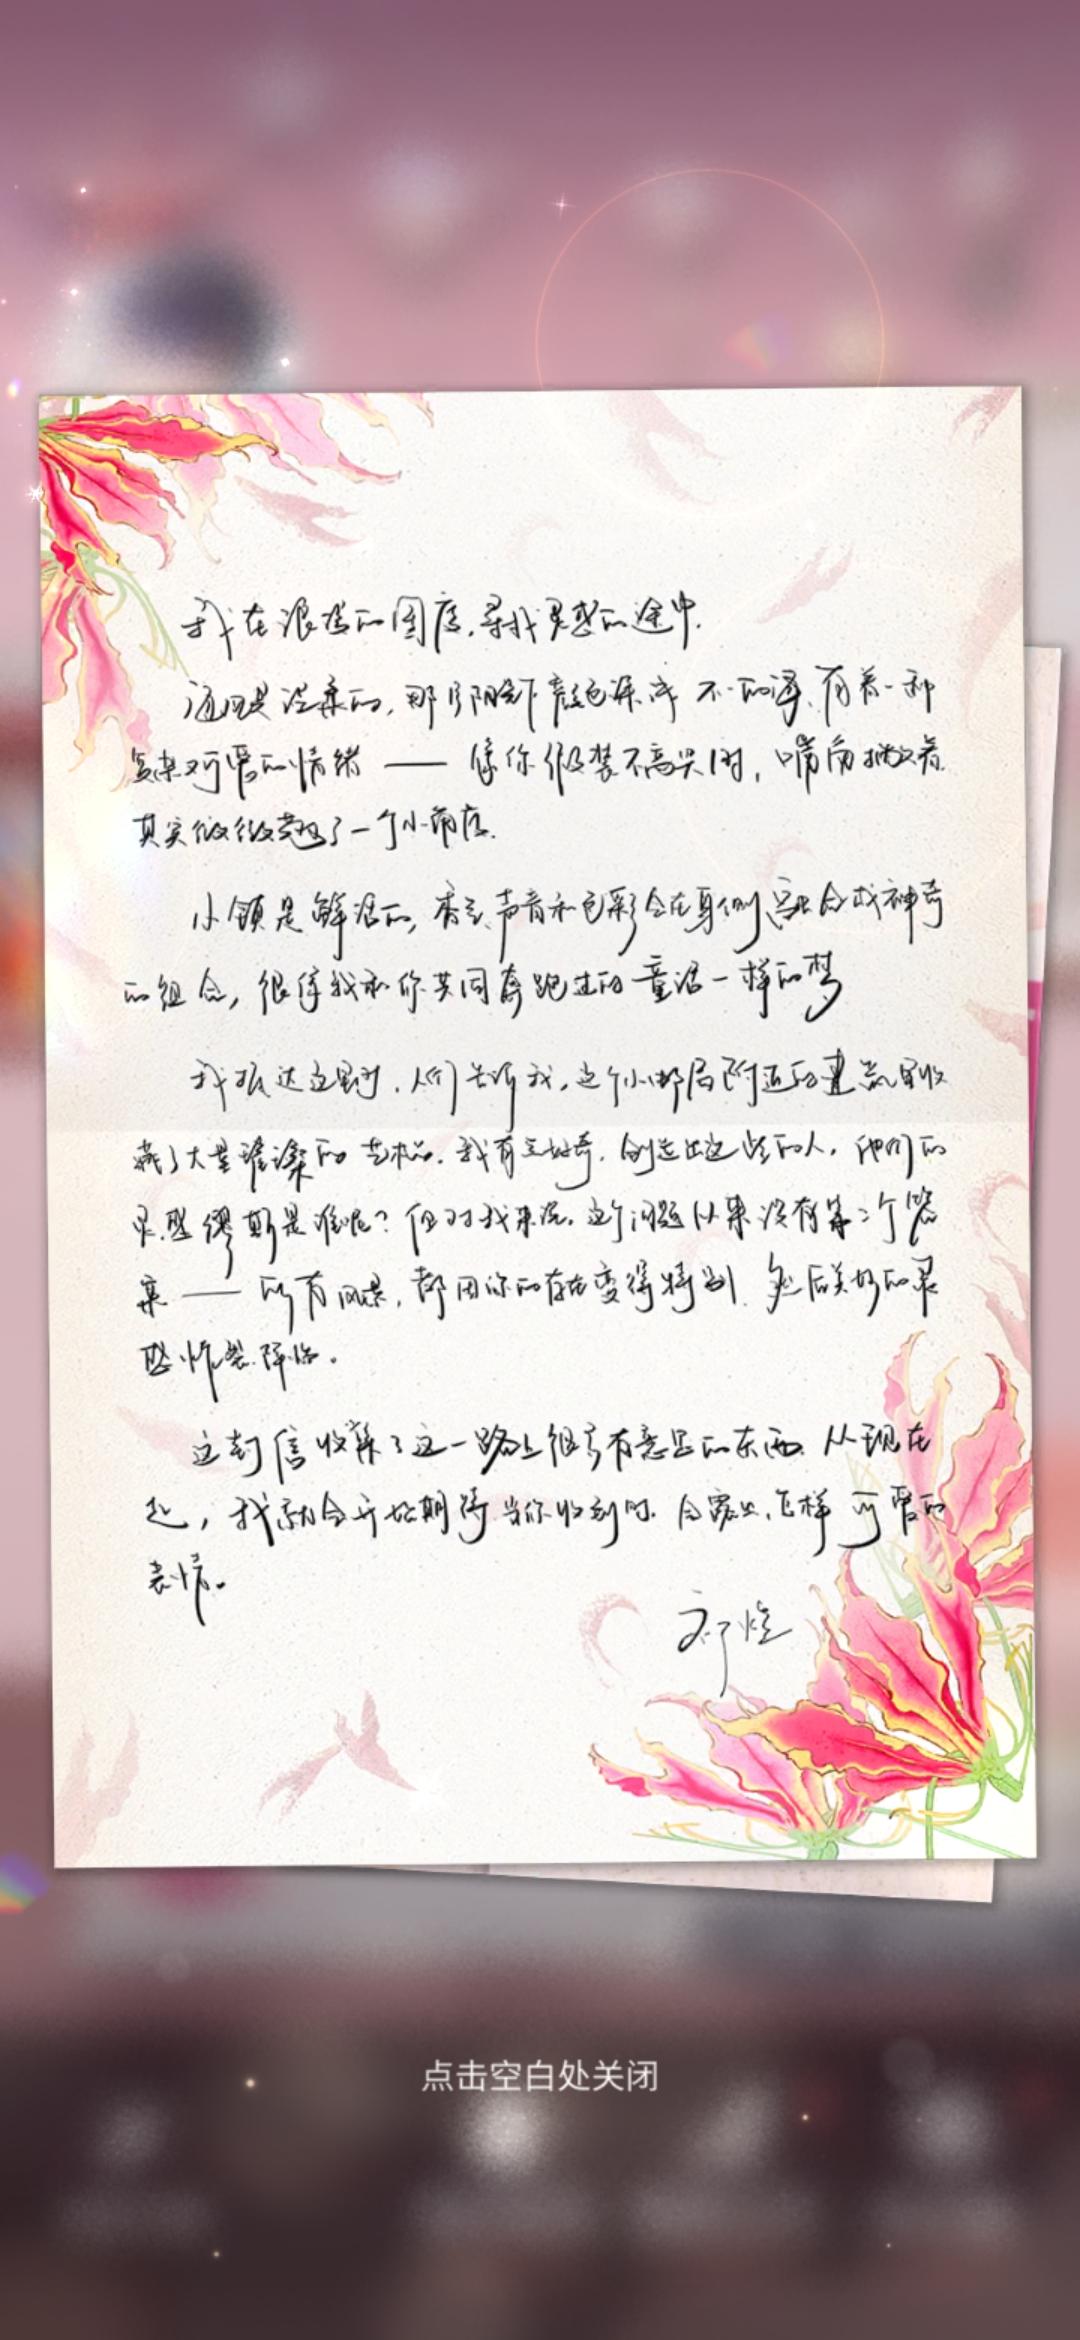 我在浪漫的国度,寻找灵感的途中.
海风是温柔的,那
复杂又可爱的情绪——像你假装不高兴时,嘴角抿着
其实微微翘起了一个小角度.
小镇是鲜活的,香气、声音和色彩会在身侧融合成神奇
的组合,很像我和你共同奔跑过的童话一样的梦
我抵达这里时,人们告诉我,这个小邮局附近的建筑里收
藏了大量浪漫的艺术品.我有点好奇,创造出这些的人,他们的
灵感缪斯是谁呢?但对我来说,这个问题从来没有第二个答
案——所有风景,都因你的存在变得特别.然后美好的灵
感炸裂降临。
这封信收集了这一路上很多有意思的东西.从现在
起,我就会开始期待当你收到时.会露出怎样可爱的
表情。
祁煜
点击空白处关闭